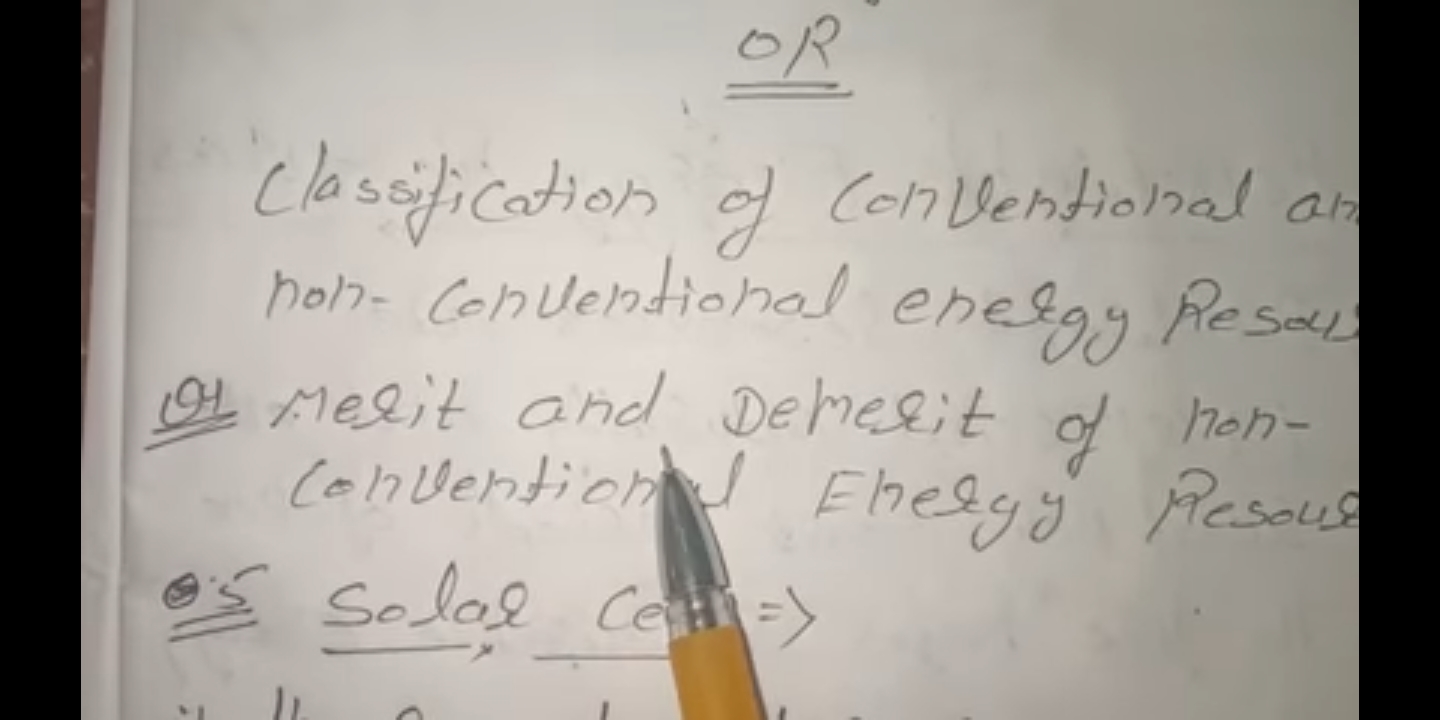 OR
Classification of Conventional an
non-Conventional energy Resou
Or Merit and Demerit of non-
Conventional Energy Resour
Q.5 Solar Ce =>